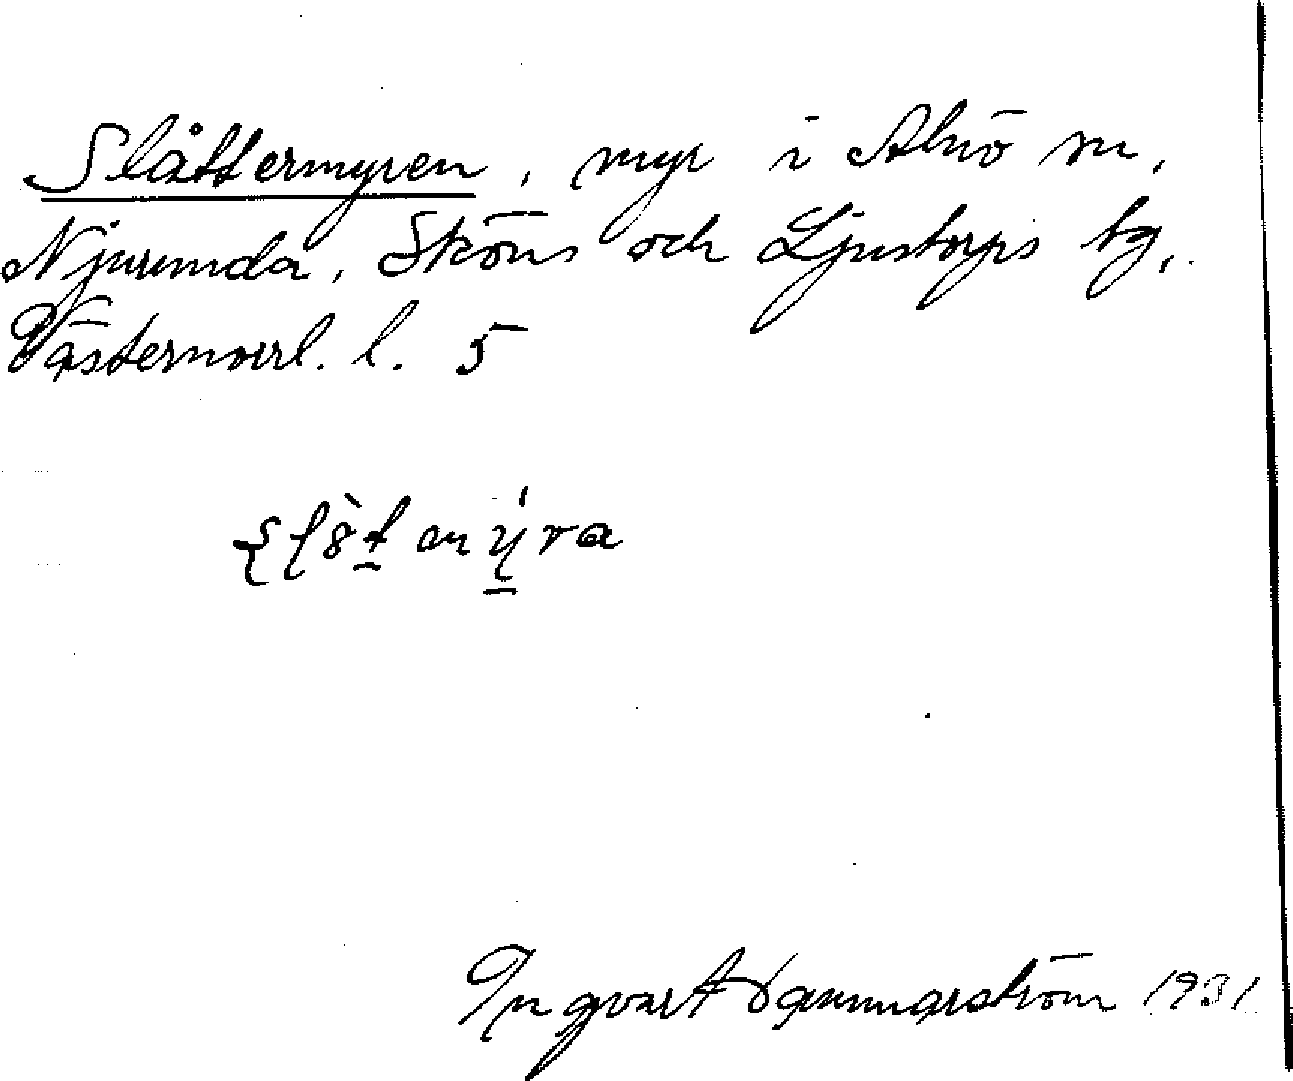 Slåttermyren, myr i Alnö sn,
Njurunda, Sköns och Ljustorps tg,
Västernorrl. l. 5
Ingvart
1931